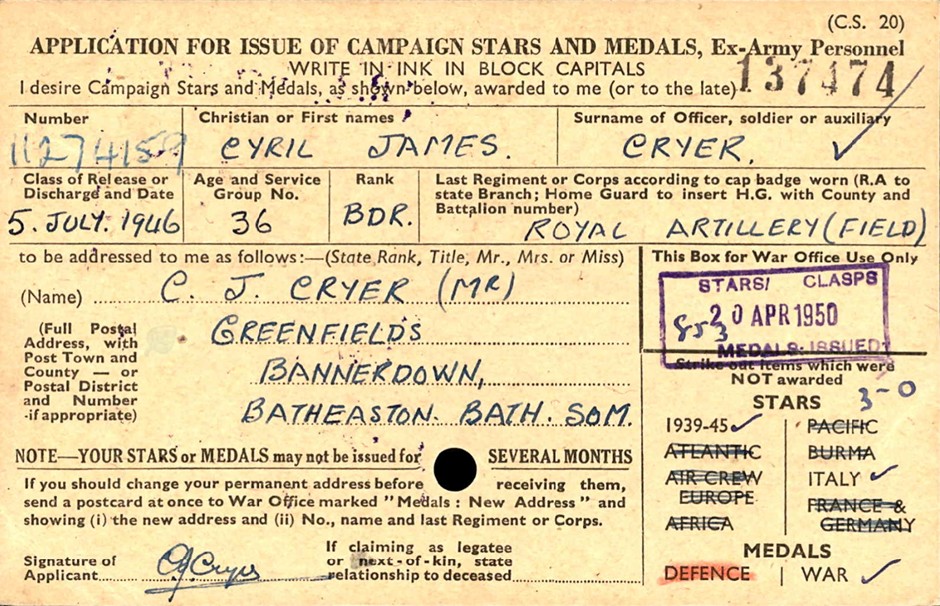 (C.S. 20)
APPLICATION FOR ISSUE OF CAMPAIGN STARS AND MEDALS, Ex-Army Personnel
WRITE IN INK IN BLOCK CAPITALS
137474
I desire Campaign Stars and Medals, as shown below, awarded to me (or to the late)
Number
11274159
Christian or First names
CYRIL JAMES.
Surname of Officer, soldier or auxiliary
CRYER.
Class of Release or Discharge and Date
5. JULY. 1946
Age and Service Group No.
36
Rank
BDR.
Last Regiment or Corps according to cap badge worn (R.A to
state Branch; Home Guard to insert H.G. with County and
Battalion number)
ROYAL ARTILLERY (FIELD)
to be addressed to me as follows:—(State Rank, Title, Mr., Mrs. or Miss)
(Name) C. J. CRYER (MR)
(Full Postal
Address, with
Post Town and
County — or
Postal District
and Number
if appropriate)
GREENFIELDS
BANNERDOWN,
BATHEASTON. BATH. SOM.
This Box for War Office Use Only
STARS/ CLASPS
853
20 APR 1950
MEDALS: ISSUED
Strike out items which were
NOT awarded
3-0
STARS
1939-45
ATLANTIC
AIR CREW
EUROPE
AFRICA
PACIFIC
BURMA
ITALY
FRANCE &
GERMANY
MEDALS
DEFENCE
WAR
NOTE—YOUR STARS or MEDALS may not be issued for SEVERAL MONTHS
If you should change your permanent address before receiving them,
send a postcard at once to War Office marked "Medals : New Address" and
showing (i) the new address and (ii) No., name and last Regiment or Corps.
Signature of
Applicant
CJCryer
If claiming as legatee
or next-of-kin, state
relationship to deceased